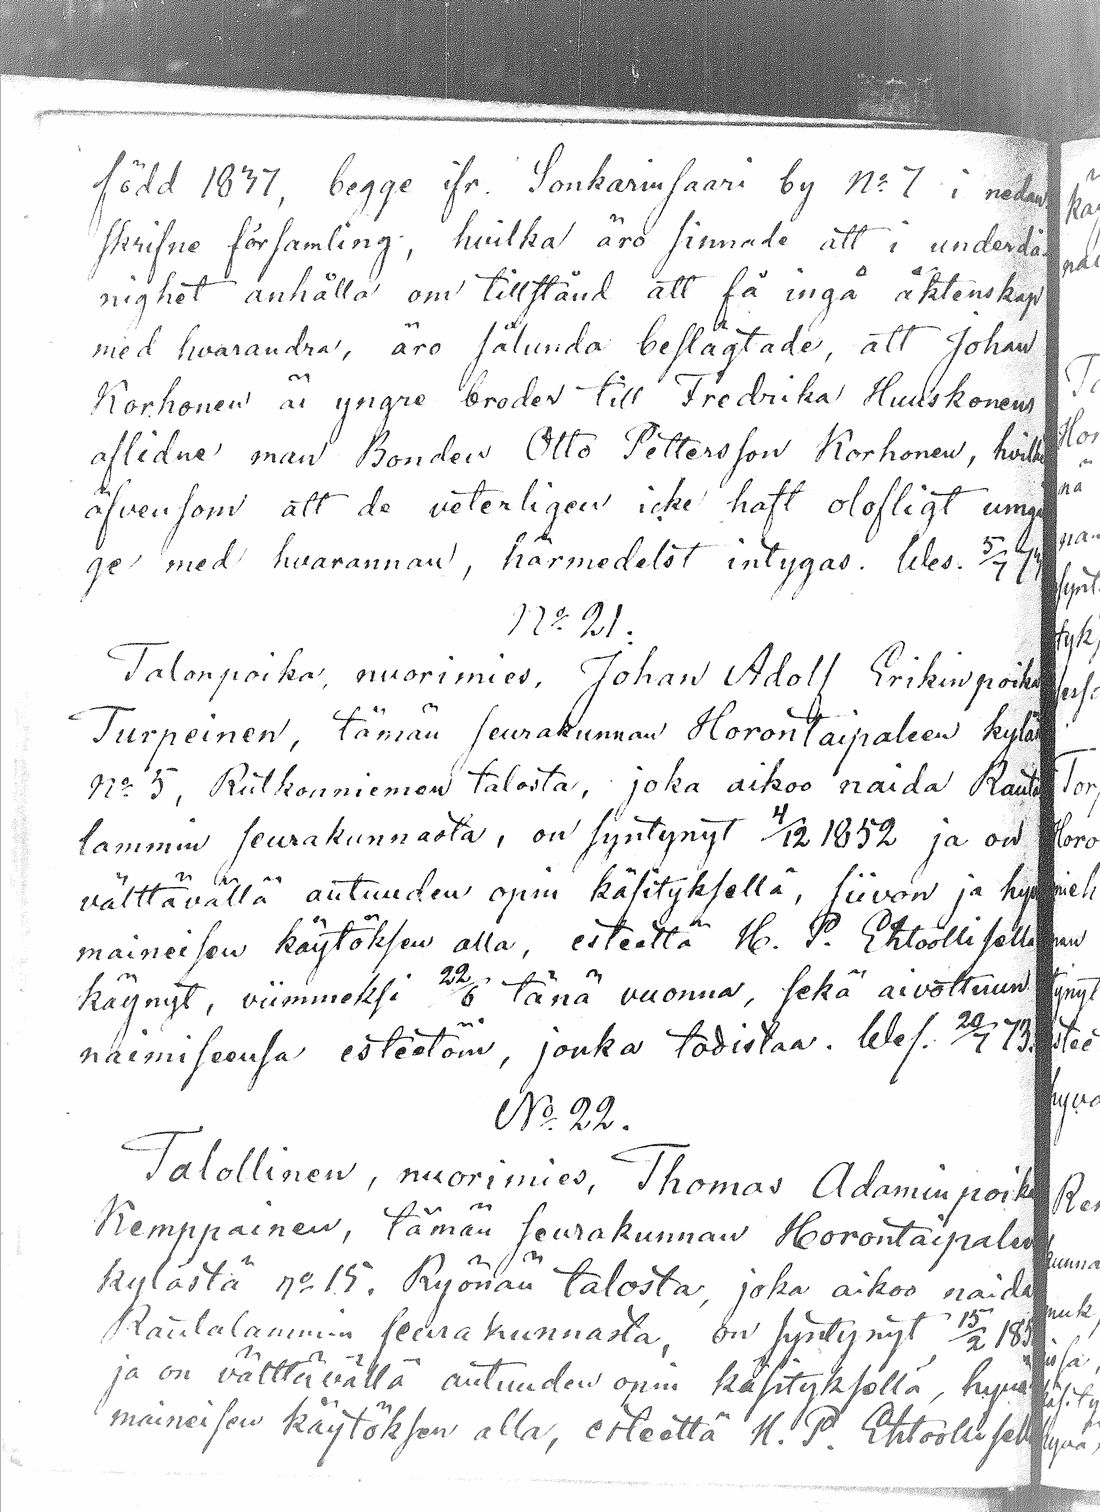 född 1837, begge ifr. Sonkarinsaari by No 7 i nedan
skrifne församling, hvilka äro sinnade att i underdå-
nighet anhålla om tillstånd att få ingå äktenskap
med hvarandra, äro sålunda beslägtade, att Johan
Korhonen är yngre broder till Fredrika Huuskonens
aflidne man Bonden Otto Pettersson Korhonen, hvilket
äfvensom att de veterligen icke haft olofligt umgä
ge med hvarannan, härmedelst intygas. Wes. 5/7 73
No 21.
Talonpoika, nuorimies, Johan Adolf Erikinpoika
Turpeinen, tämän seurakunnan Horontaipaleen kylän
No 5, Rutkonniemen talosta, joka aikoo naida Rauta
lammin seurakunnasta, on syntynyt 4/12 1852 ja on
välttävällä autuuden opin käsityksellä, siivon ja hyvä
maineisen käytöksen alla, esteettä H. P. Ehtoollisella
käynyt, viimmeksi 22/6 tänä vuonna, sekä aivottuun
naimiseensa esteetöin, jonka todistaa. Wes. 20/7 73.
No 22.
Talollinen, nuorimies, Thomas Adaminpoika
Kemppainen, tämän seurakunnan Horontaipaleen
kylästä No 15. Ryönän talosta, joka aikoo naida
Rautalammin seurakunnasta, on syntynyt 15/2 185
ja on välttävällä autuuden opin käsityksellä, hyvä
maineisen käytöksen alla, esteettä H. P. Ehtoollisella